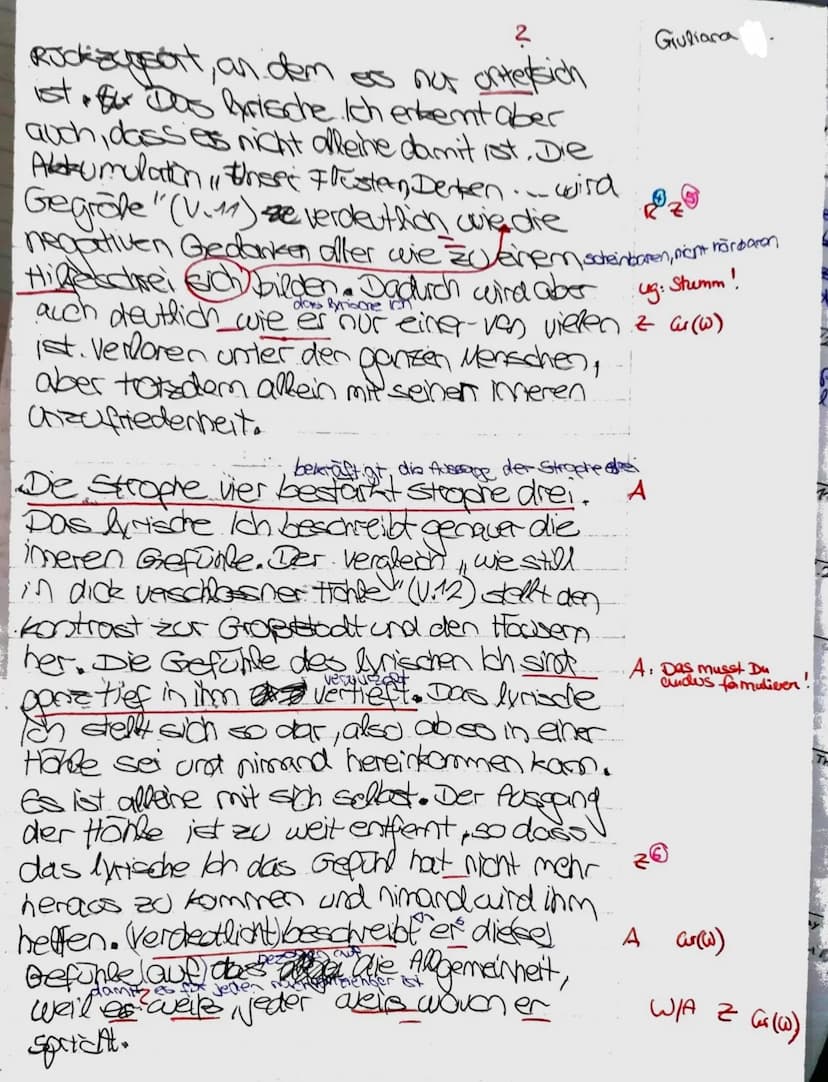 ?
Giuliana
Rückzugsort, an dem es nur
ist. Das lyrische Ich erkennt aber
auch, dass es nicht alleine damit ist. Die
Akkumulation „Unser Flüstern, Denken ... wird
Gegröle" (V. 11) verdeutlich wie die
R④ Z⑤
negativen Gedanken aller wie zu einem scheinbaren, nicht hörbaren
Hilfeschrei sich bilden. Dadurch wird aber
ug: Stumm!
das lyrische Ich
auch deutlich wie er nur einer von vielen
Z Gr(W)
ist. Verloren unter den ganzen Menschen,
aber totzdem allein mit seiner inneren
Unzufriedenheit.
bekräftigt die Aussage der Strophe drei
Die Strophe vier bestärkt Strophe drei.
A
Das lyrische Ich beschreibt genauer die
inneren Gefühle. Der Vergleich „wie still
in dick verschlossner Höhle" (V.12) stellt den
Kontrast zur Großstadt und den Häusern
her. Die Gefühle des lyrischen Ich sind
A: Das musst Du
anders formulieren!
verwurzelt
ganz tief in ihm vertieft. Das lyrische
Ich stellt sich so dar, also ob es in einer
Höhle sei und nimand hereinkommen kann.
Es ist alleine mit sich selbst. Der Ausgang
der Höhle ist zu weit entfernt, so dass
das lyrische Ich das Gefühl hat nicht mehr
Z⑥
heraus zu kommen und nimand wird ihm
helfen. (Verdeutlicht) beschreibt er diese
A Gr(W)
bezogen auf
Gefühle (auf) die Allgemeinheit,
damit es für jeden nachempfindbar ist
weil er weiß, jeder weiß wovon er
W/A Z Gr(W)
spricht.